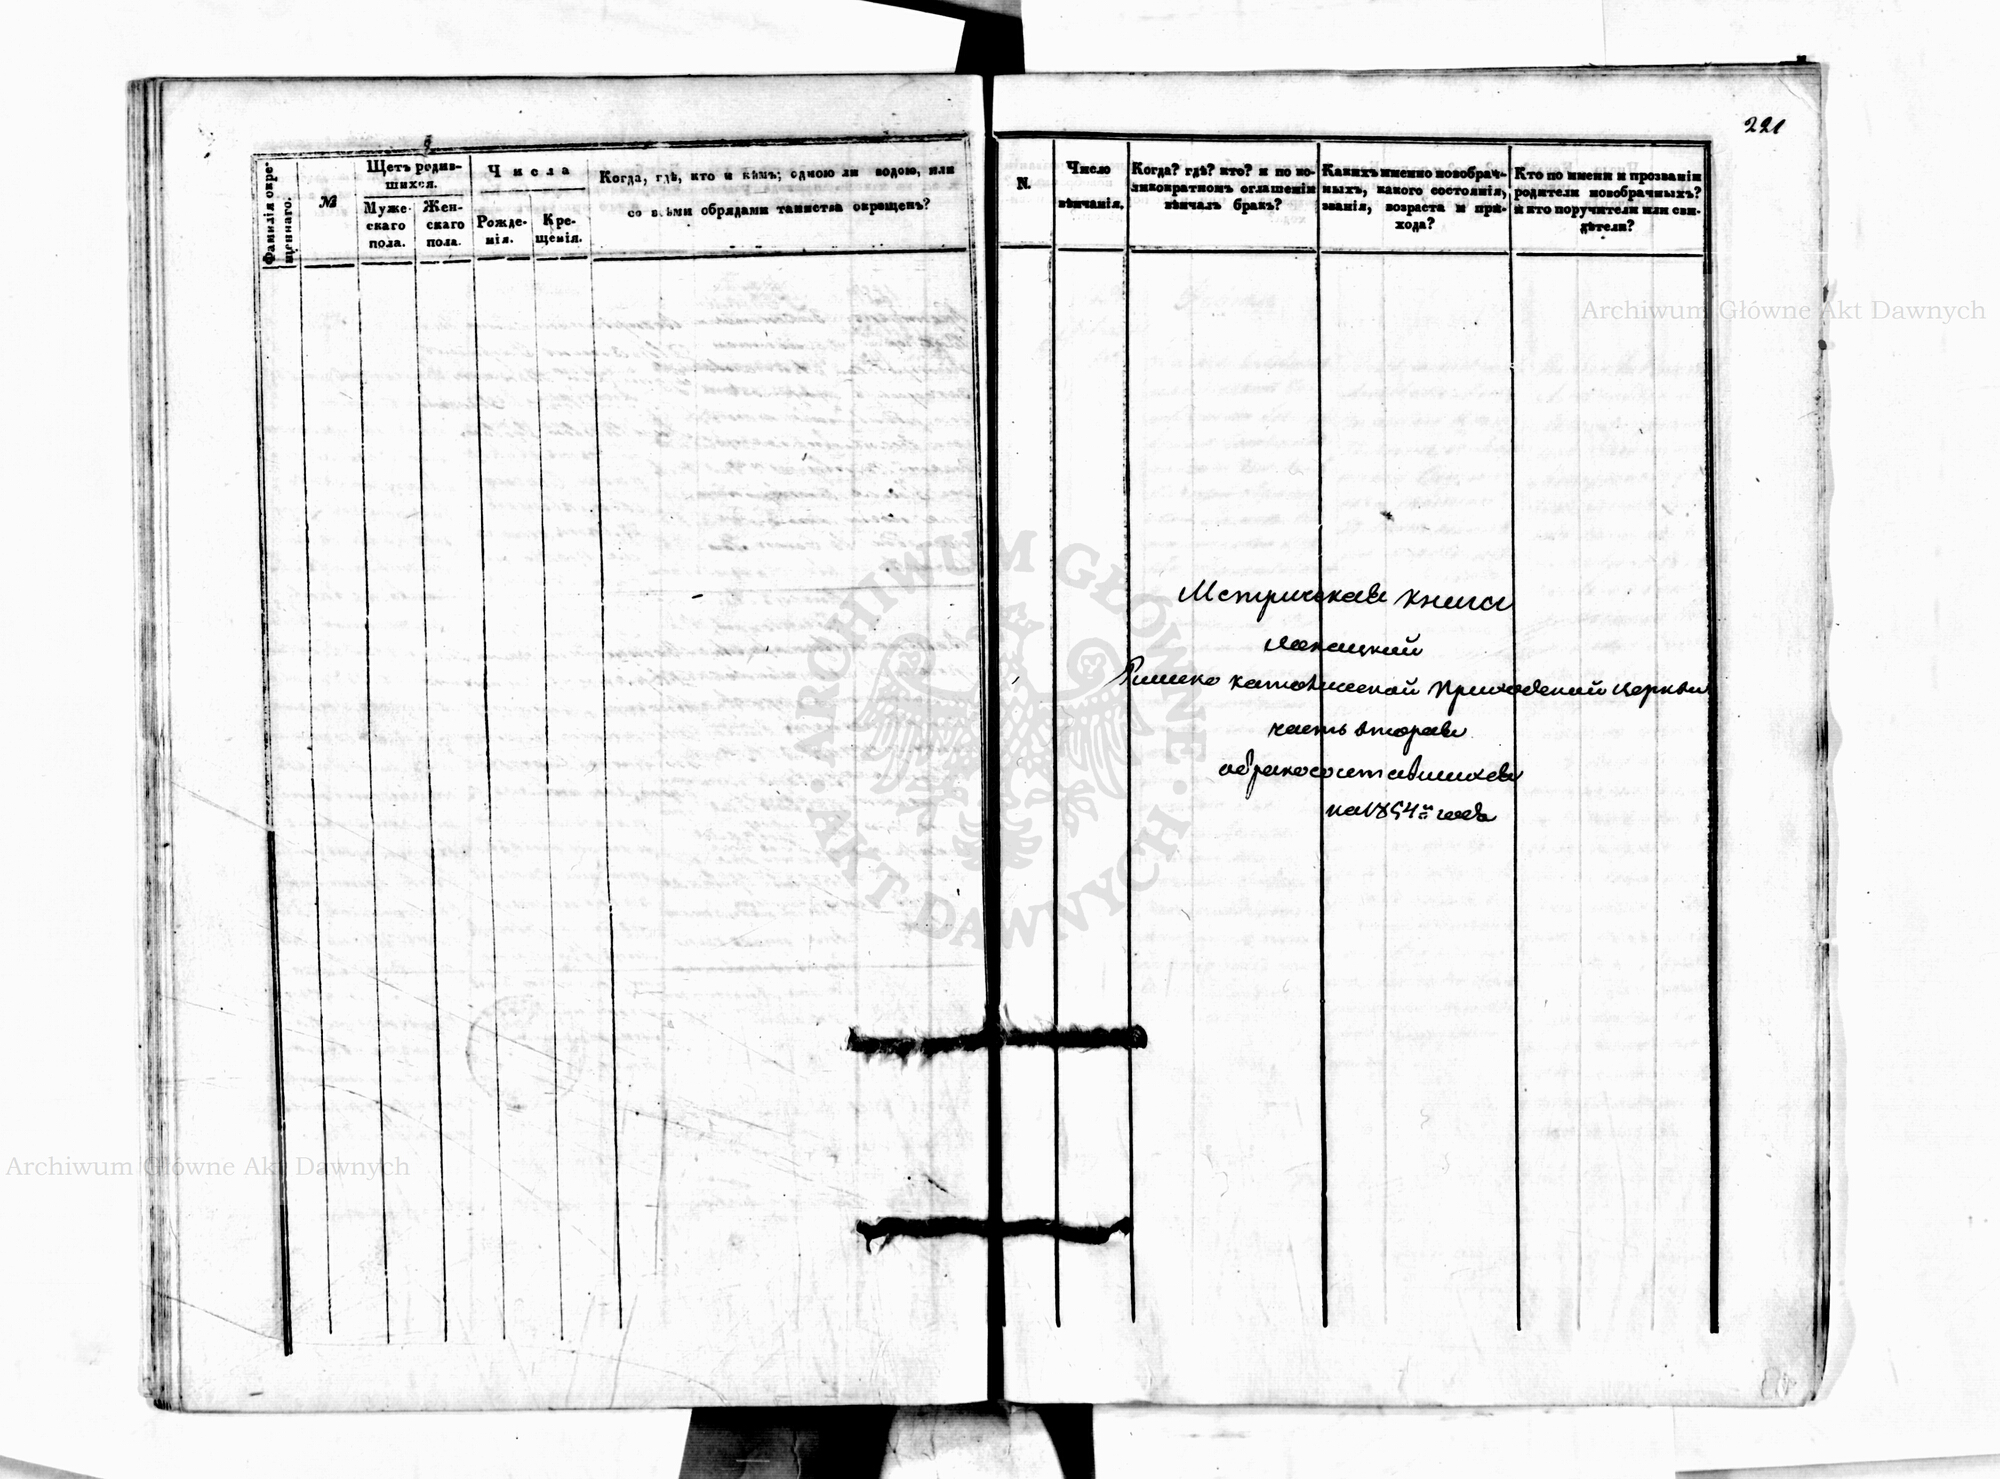 Фамилія окре-
щеннаго.
№
Щетъ родив-
шихся.
Муже-
скаго
пола.
Жен-
скаго
пола.
Числа
Рожде-
нія.
Кре-
щенія.
Когда, гдѣ, кто и кѣмъ; одною ли водою, или
со всѣми обрядами таинства окрещенъ?
221
N.
Число
вѣнчанія.
Когда? гдѣ? кто? и по ко-
ликократномъ оглашеніи
вѣнчалъ бракъ?
Какихъ именно новобрач-
ныхъ, какого состоянія,
званія, возраста и при-
хода?
Кто по имени и прозванію
родители новобрачныхъ?
и кто поручители или сви-
дѣтели?
Метрическая книга
Римско католической Приходской церкви
часть вторая
о бракосочетавшихся
на 1854й годъ
ARCHIWUM GŁÓWNE AKT DAWNYCH
Archiwum Główne Akt Dawnych
Archiwum Główne Akt Dawnych